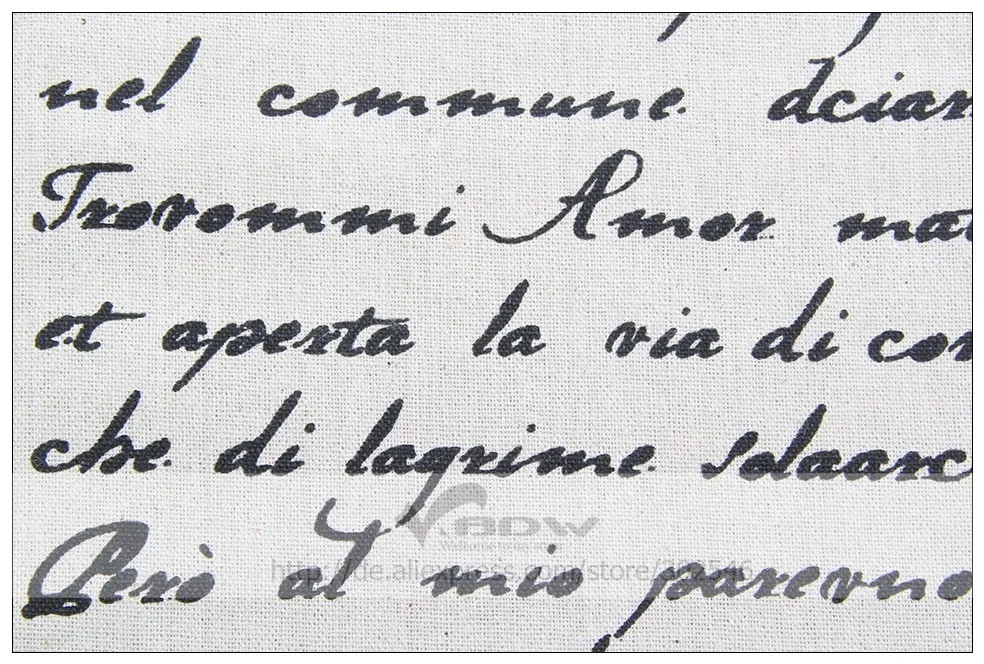 nel commune dciar
Trovommi Amor mat
et aperta la via di cor
che di lagrime solaarc
Però al mio parervno
ADW
http://de.aliexpress.com/store/